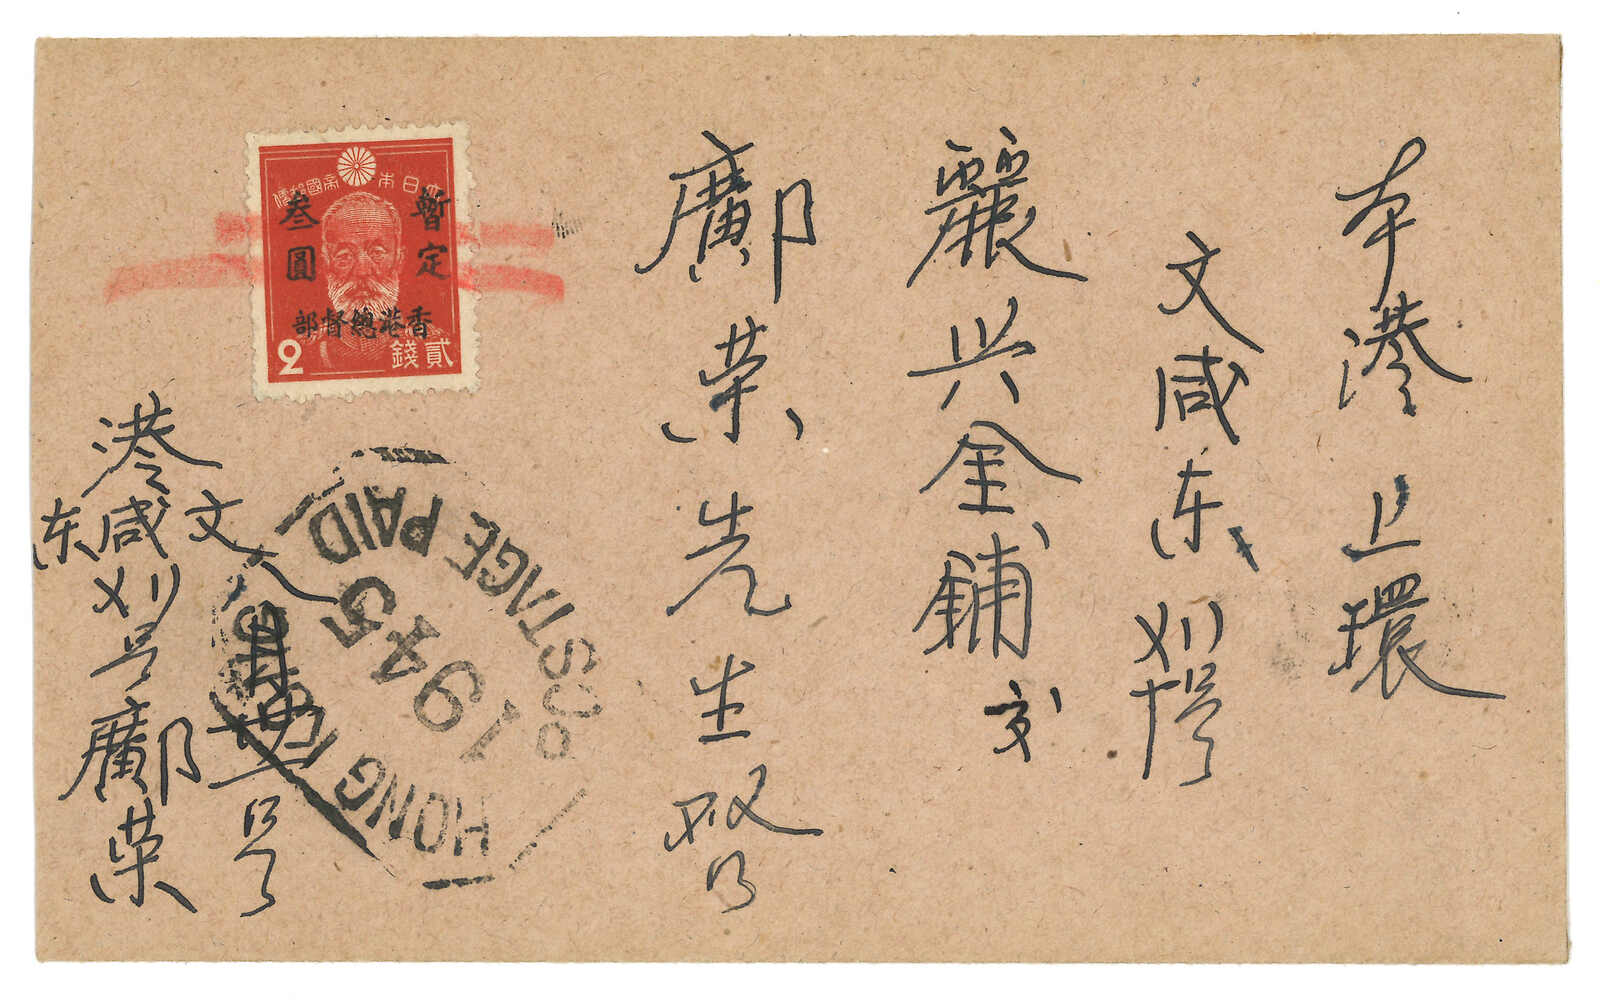 本港上環
文咸东〤〢号
麗兴金鋪交
鄺荣先生啓
大日本帝國郵便
暫定
叁圓
香港總督部
2 貳錢
HONG KONG
1945
POSTAGE PAID
港文咸东〤〢号鄺荣